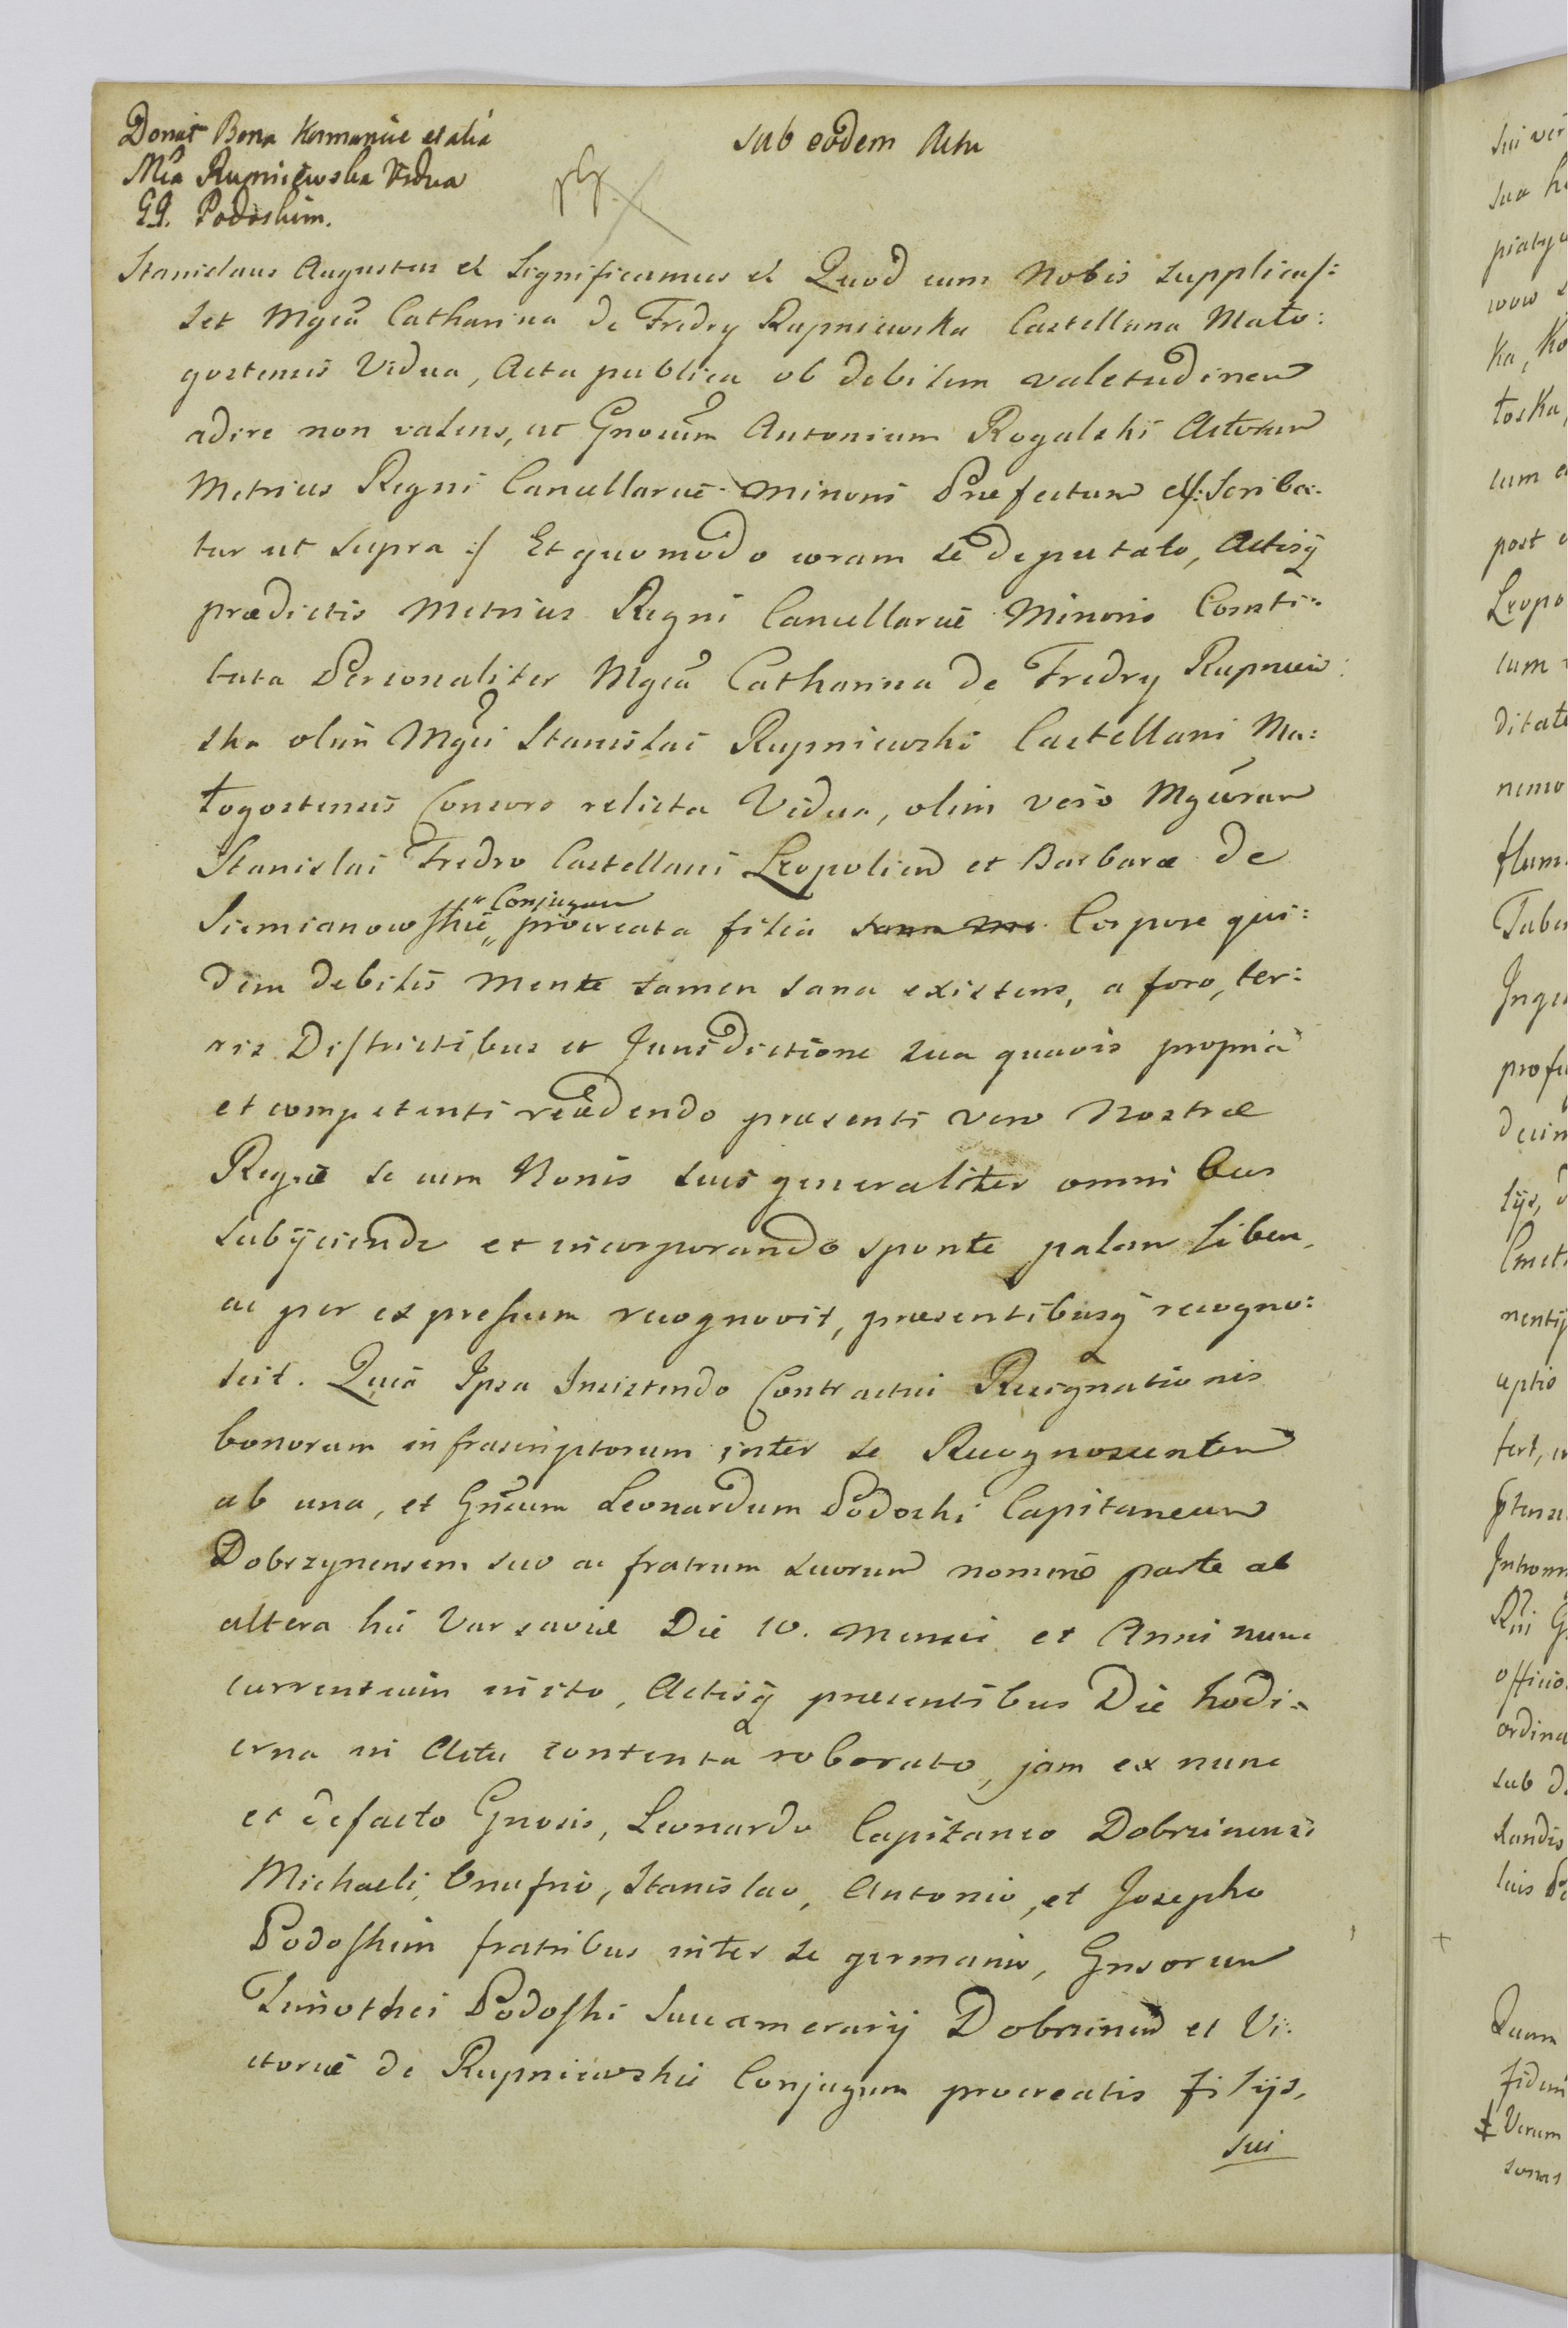 Donat Bona Kormanice et alia
Mca Rupniewska Vidua
GG. Podoskim.
sub eodem Actu
Stanislaus Augustus et Significamus et Quod cum Nobis supplicas:
set Mgca Catharina de Fredry Rupniewska Castellana Mało:
gostensis Vidua, Acta publica ob debilem valetudinem
adire non valens, ut Gnosum Antonium Rogalski Actorum
Metrices Regni Cancellariæ Minoris Præfectum &/: Scriba:
tur ut supra :/ Et quomodo coram se deputato, Actisq
prædictis Metrices Regni Cancellariæ Minoris Consti:
tuta Personaliter Mgca Catharina de Fredry Rupniew:
ska olim Mgci Stanislai Rupniewski Castellani Ma:
łogostensis Consors relicta Vidua, olim vero Mgcorum
Stanislai Fredro Castellani Leopolien et Barbaræ de
Siemianowskie „ Conjugum procreata filia sana me Corpore qui:
dem debilis mente tamen sana existens, a foro, ter:
ris Districtibus et Jurisdictione sua quavis propria
et competenti recedendo præsenti vero Nostræ
Regiæ se cum Bonis suis generaliter omnibus
subijciendo et incorporando sponte palam libere,
ac per expressum recognovit, præsentibusq recogno:
scit. Quia Ipsa Insistendo Contractui Resignationis
bonorum infrascriptorum inter se Recognoscentem
ab una, et Gnosum Leonardum Podoski Capitaneum
Dobrzynensem suo ac fratrum suorum nomine parte ab
altera hic Varsaviæ Die 10. mensis et Anni nunc
currentium inito, Actisq præsentibus Die hodi:
erna in Actu contenta roborato, jam ex nunc
et defacto Gnosis, Leonardo Capitaneo Dobrzinensi
Michaeli, Onufrio, Stanislao, Antonio, et Josepho
Podoskim fratribus inter se germanis, Gnsorum
Timothei Podoski Succamerarij Dobrzinen et Vi:
ctoriæ de Rupniewskie Conjugum procreatis filijs,
sui